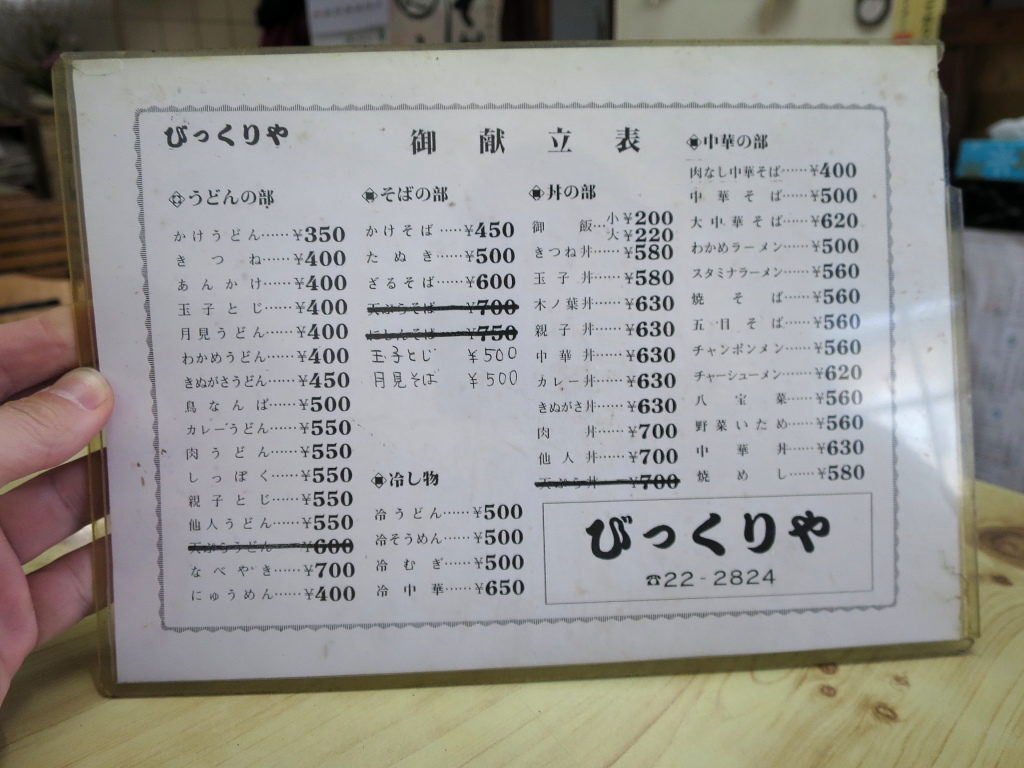 びっくりや
御献立表
うどんの部
かけうどん……¥350
きつね……¥400
あんかけ……¥400
玉子とじ……¥400
月見うどん……¥400
わかめうどん……¥400
きぬがさうどん……¥450
鳥なんば……¥500
カレーうどん……¥550
肉うどん……¥550
しっぽく……¥550
親子とじ……¥550
仙人うどん……¥550
天ぷらうどん……¥600
なべやき……¥700
にゅうめん……¥400
そばの部
かけそば……¥450
たぬき……¥500
ざるそば……¥600
天ぷらそば……¥700
にしんそば……¥750
玉子とじ ¥500
月見そば ¥500
冷し物
冷うどん……¥500
冷そうめん……¥500
冷むぎ……¥500
冷中華……¥650
丼の部
御飯…小¥200
大¥220
きつね丼……¥580
玉子丼……¥580
木ノ葉丼……¥630
親子丼……¥630
中華丼……¥630
カレー丼……¥630
きぬがさ丼……¥630
肉丼……¥700
仙人丼……¥700
天ぷら丼……¥700
中華の部
肉なし中華そば……¥400
中華そば……¥500
大中華そば……¥620
わかめラーメン……¥500
スタミナラーメン……¥560
焼そば……¥560
五目そば……¥560
チャンポンメン……¥560
チャーシューメン……¥620
八宝菜……¥560
野菜いため……¥560
中華丼……¥630
焼めし……¥580
びっくりや
☎22-2824